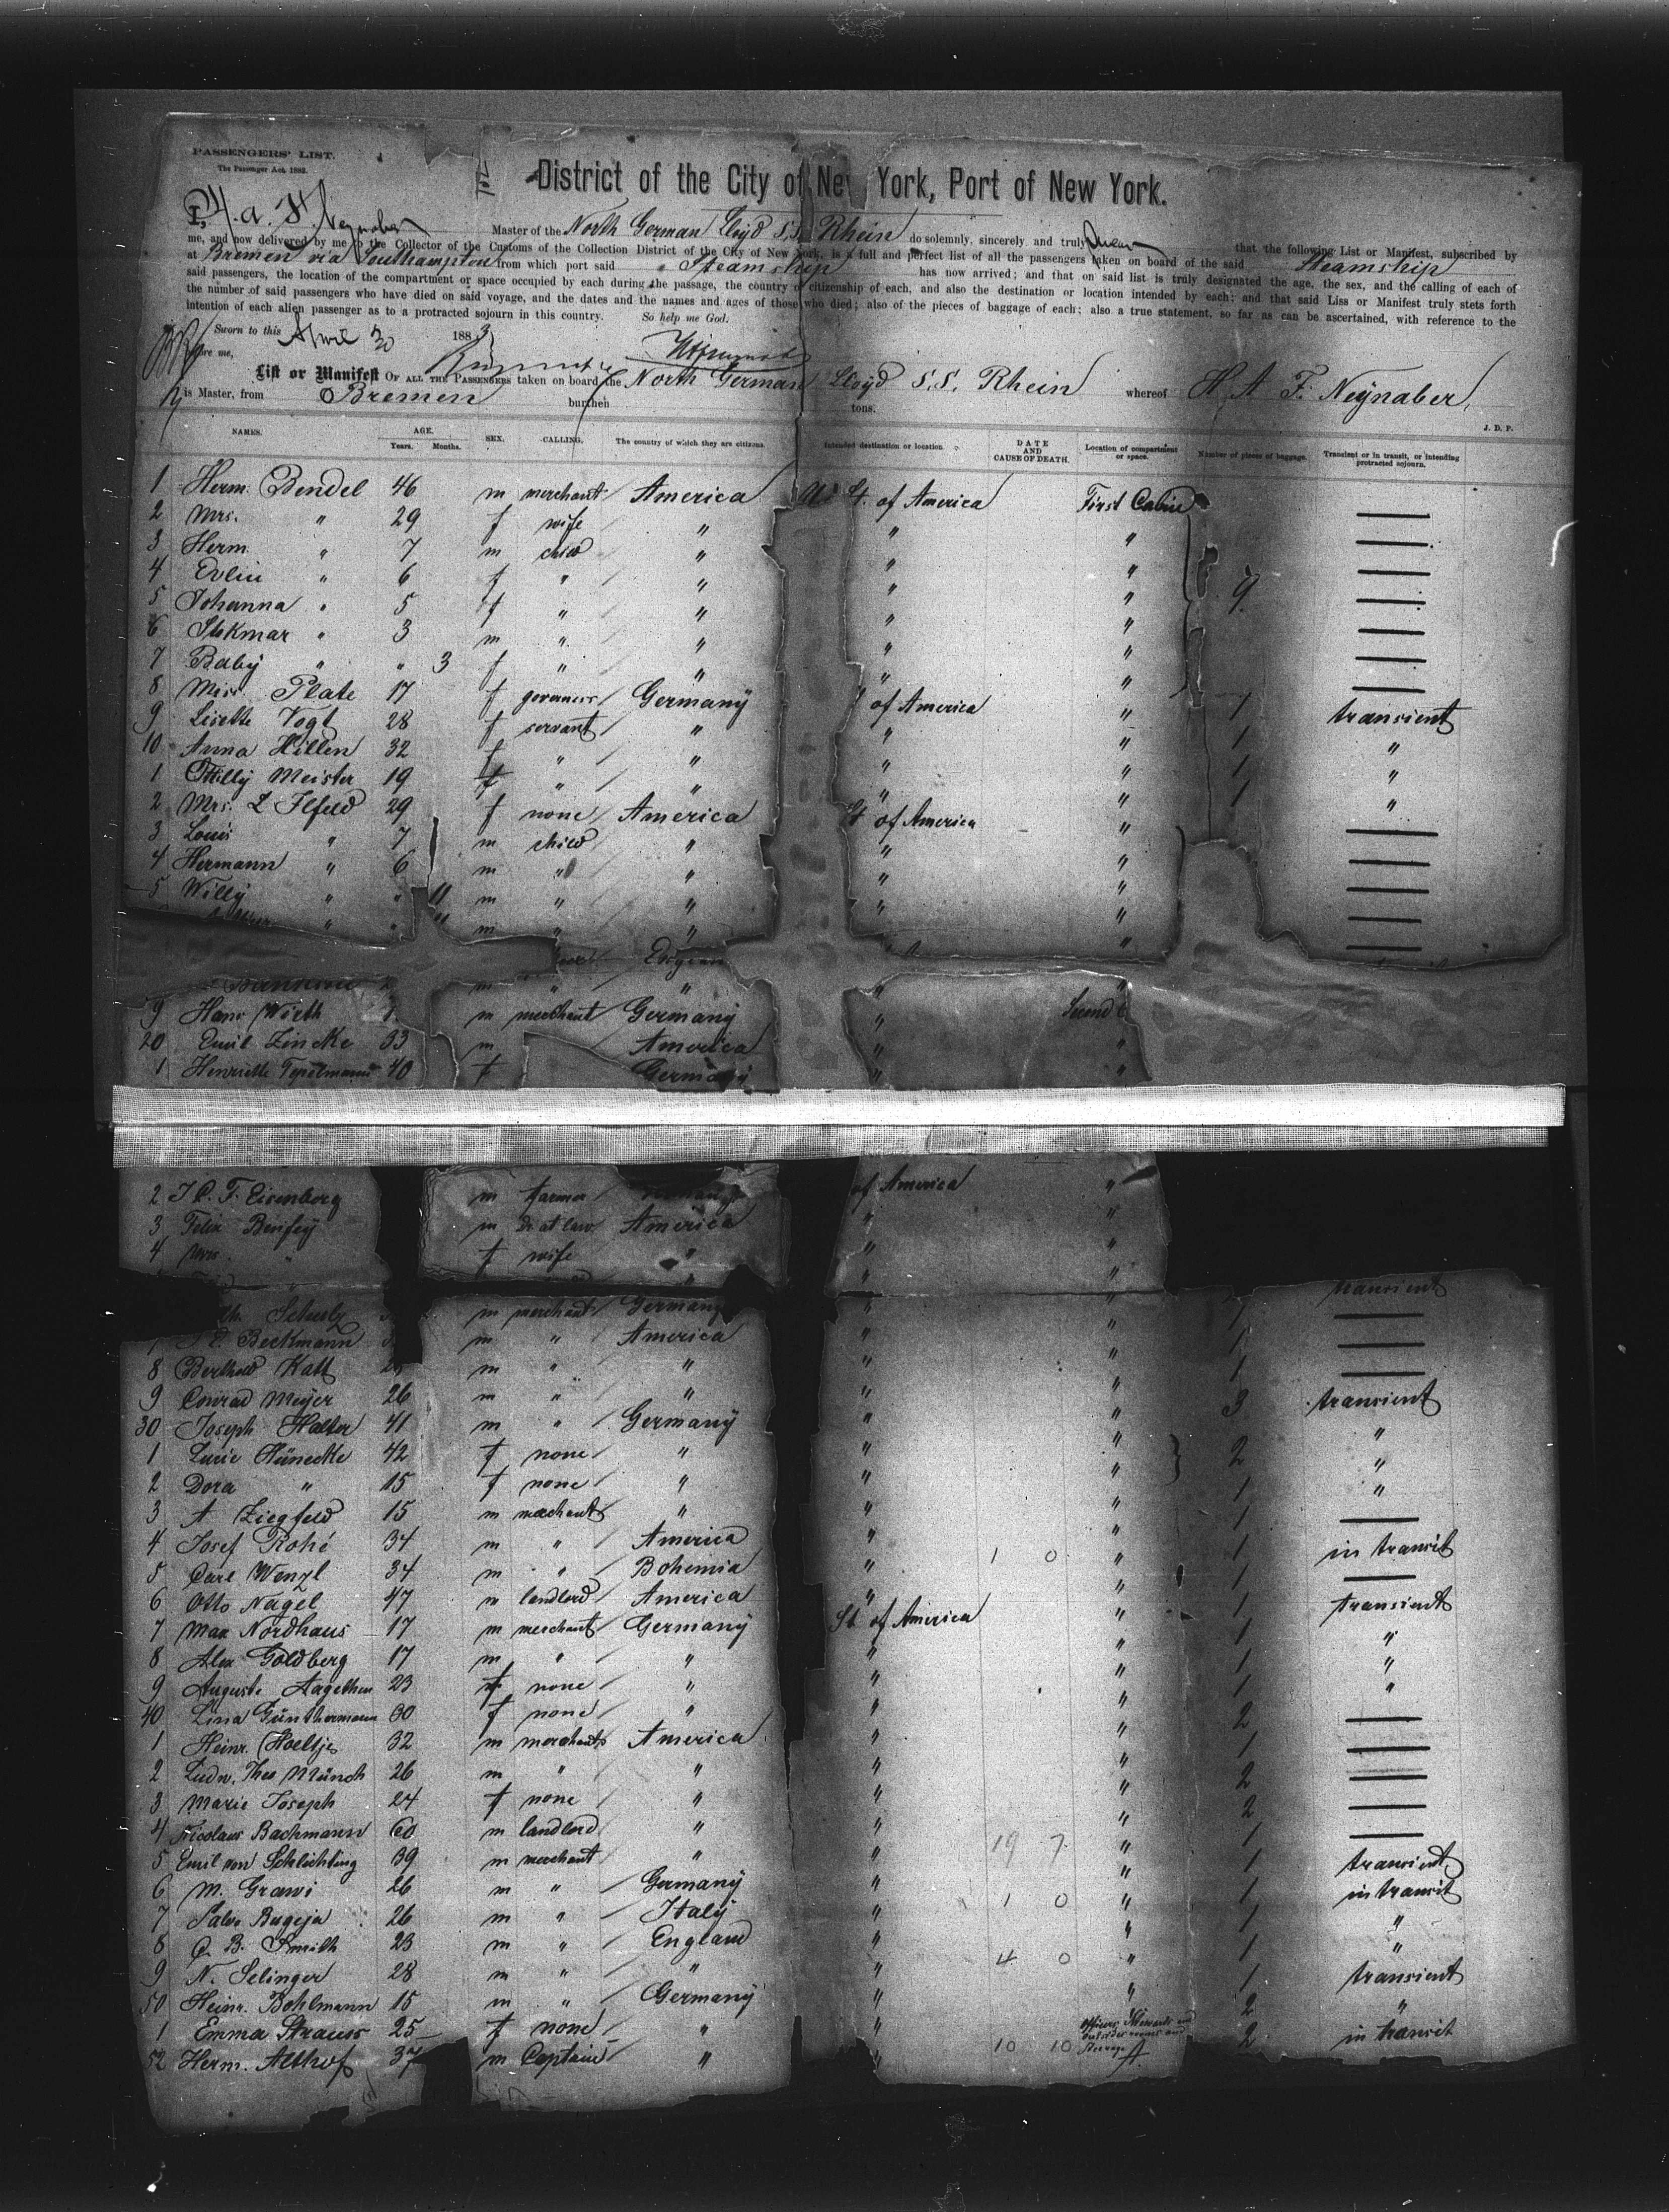 PASSENGERS' LIST.
The Passenger Act, 1882.
District of the City of New York, Port of New York.
I, H. A. F. Neynaber Master of the North German Lloyd S.S. Rhein do solemnly, sincerely and truly swear that the following List or Manifest, subscribed by
me, and now delivered by me to the Collector of the Customs of the Collection District of the City of New York, is a full and perfect list of all the passengers taken on board of the said Steamship
at Bremen via Southampton from which port said Steamship has now arrived; and that on said list is truly designated the age, the sex, and the calling of each of
said passengers, the location of the compartment or space occupied by each during the passage, the country of citizenship of each, and also the destination or location intended by each; and that said Liss or Manifest truly stets forth
the number of said passengers who have died on said voyage, and the dates and the names and ages of those who died; also of the pieces of baggage of each; also a true statement, so far as can be ascertained, with reference to the
intention of each alien passenger as to a protracted sojourn in this country. So help me God.
Sworn to this April 30 1883
before me,
List or Manifest OF ALL THE PASSENGERS taken on board the North German Lloyd S.S. Rhein whereof H. A. F. Neynaber,
is Master, from Bremen burthen tons.
J. D. P.
NAMES. AGE. Years. Months. SEX. CALLING. The country of which they are citizens. Intended destination or location. DATE AND CAUSE OF DEATH. Location of compartment or space. Number of pieces of baggage. Transient or in transit, or intending protracted sojourn.
1 Herm. Bendel 46 m merchant America St. of America First Cabin
2 Mrs. " 29 f wife " " "
3 Herm. " 7 m child " " "
4 Evlin " 6 f " " " " 9
5 Johanna " 5 f " " " "
6 " 3 m " " " "
7 Baby " " 3 f " " " "
8 Miss. Plate 17 f governess Germany of America " 1 transient
9 Lisette Vogt 28 f servant " " " 1 "
10 Anna Hillen 32 f " " " " 1 "
1 Ottilly Meister 19 f " " " " 1 "
2 Mrs. L Ilfeld 29 f none America St. of America "
3 Louis " 7 m child " " "
4 Hermann " 6 m " " " "
5 Willy " " 11 m " " " "
" " " m " "
m " " "
9 Hans Wirth m merchant Germany " Second C
20 Emil Zincke 33 m America " "
1 Henriette Tepelmann 40 f Germany " "
2 J C. F. Eisenberg m farmer of America "
3 Felix Benfey m Dr at law America " "
4 Mrs. " f wife " " "
Schulz m merchant Germany " " 1
Beckmann m " America " " 1
8 Berthold Katt m " " " " 1
9 Conrad Meyer 26 m " " " " 3 transient
30 Joseph Halter 41 m " Germany " " "
1 Lucie Hünecke 42 f none " " " 2 "
2 Dora " 15 f none " " " 1 "
3 A Ziegfeld 15 m merchant " " " 1
4 Josef Rohé 34 m " America " 1 0 " 1 in transit
5 Carl Wenzl 34 m " Bohemia " " 1
6 Otto Nagel 47 m landlord America " " 1 transient
7 Max Nordhaus 17 m merchant Germany St. of America " 1 "
8 Alex Goldberg 17 m " " " " 1 "
9 Auguste Aagethen 23 f none " " " 1 "
40 Lina Günthermann 30 f none " " " 2
1 Heinr. Hoeltje 32 m merchant America " " 1
2 Ludw. Theo Münch 26 m " " " " 2
3 Marie Joseph 24 f none " " " 2
4 Nicolaus Bachmann 60 m landlord " " 19 7 " 1
5 Emil von Schlichting 39 m merchant " " " 1 transient
6 M. Grawi 26 m " Germany " 1 0 " 1 in transit
7 Salvo Bugeja 26 m " Italy " " 1 "
8 C. B. Smith 23 m " England " 4 0 " 1 "
9 N. Selinger 28 m " " " " 1 transient
50 Heinr. Bohlmann 15 m " Germany " " 2 "
1 Emma Strauss 25 f none " " 10 10 2 in transit
52 Herm. Althof 37 m Captain "